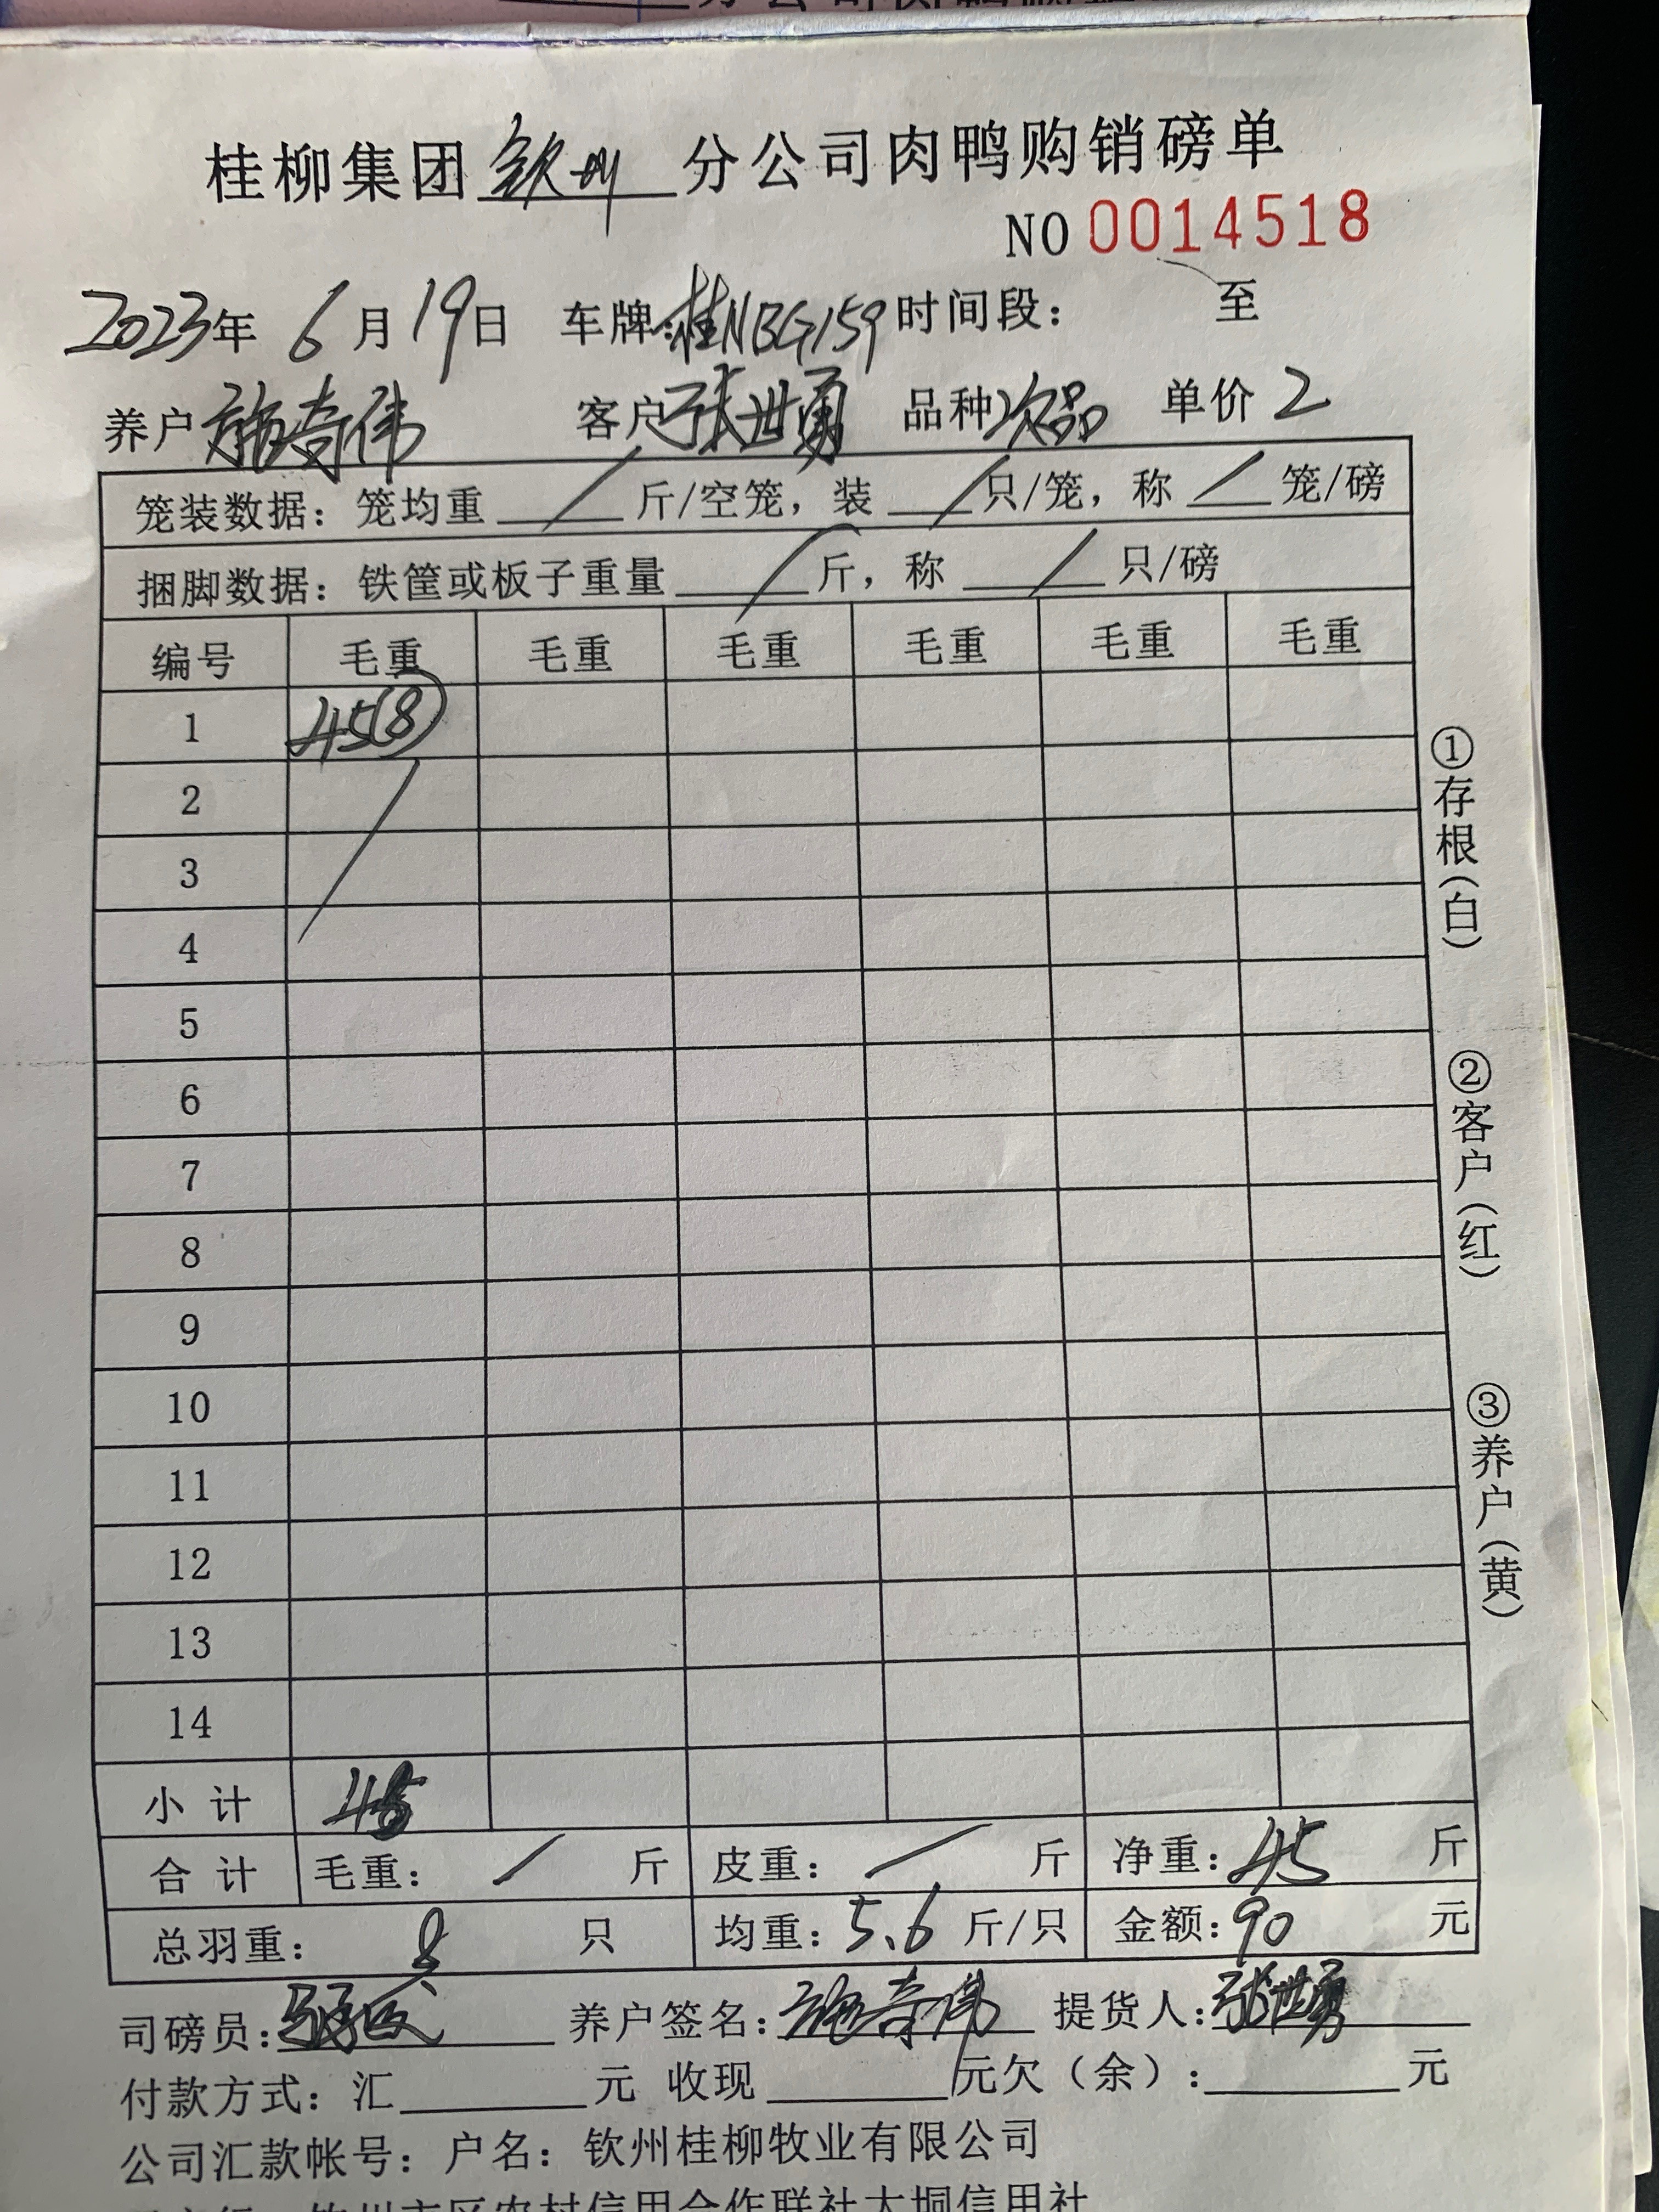 桂柳集团钦州分公司肉鸭购销磅单
NO 0014518
2023年 6月19日 车牌:桂NBG159 时间段: 至
养户 施奇伟 客户 张世勇 品种 次品 单价 2
笼装数据:笼均重 / 斤/空笼,装 / 只/笼,称 / 笼/磅
捆脚数据:铁筐或板子重量 / 斤,称 / 只/磅
编号 毛重 毛重 毛重 毛重 毛重 毛重
1 45(8)
2
3
4
5
6
7
8
9
10
11
12
13
14
小计 45
合计 毛重: / 斤 皮重: / 斤 净重:45 斤
总羽重: 8 只 均重:5.6 斤/只 金额:90 元
司磅员: 养户签名:施奇伟 提货人:张世勇
付款方式:汇 元 收现 元欠(余): 元
公司汇款帐号:户名:钦州桂柳牧业有限公司
钦州市区农村信用合作联社大垌信用社
①存根(白)
②客户(红)
③养户(黄)